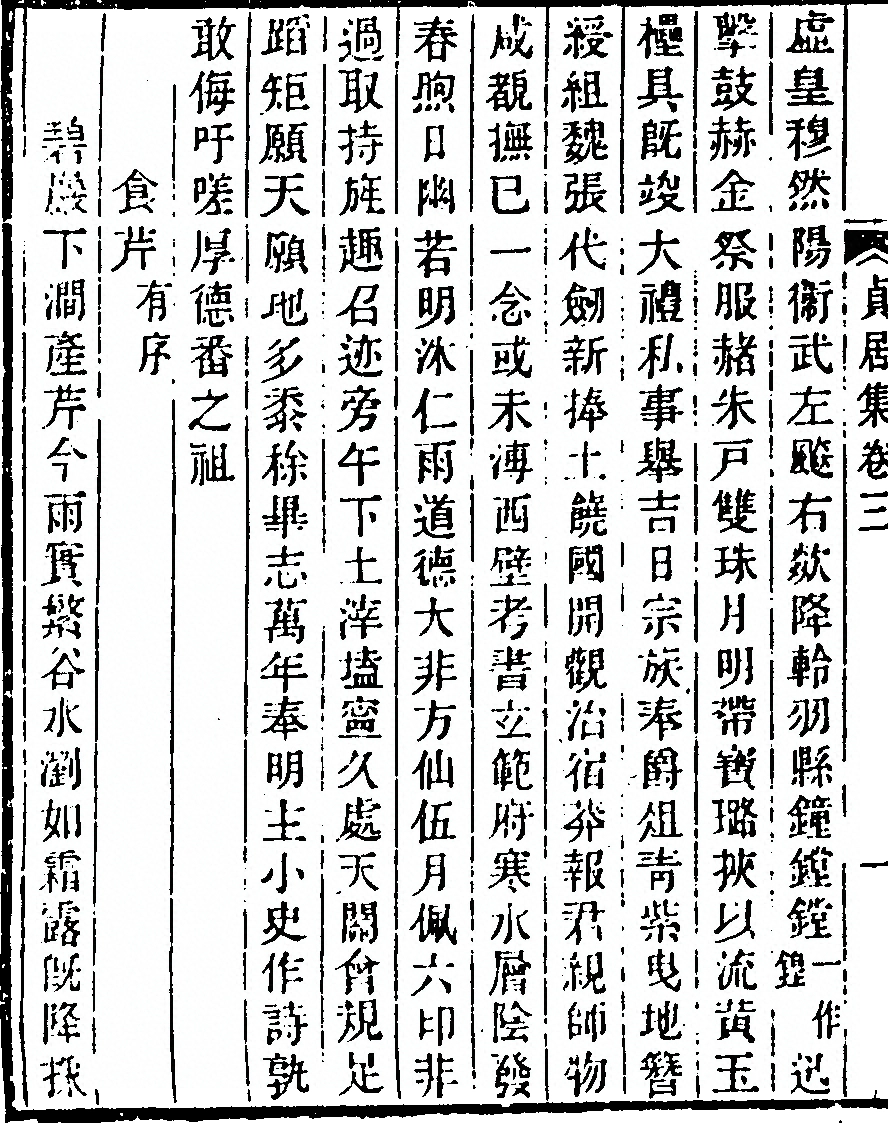 貞居集卷三 一
虛皇穆然陽衞武左飈右欻降軨羽縣鐘鏜鏜一作鍠迅
擊鼓赫金祭服赭朱戸雙珠月明帶寶璐挾以流黃玉
櫑具旣竣大禮私事舉吉日宗族奉爵俎靑紫曳地簪
綬組魏張代劒新捧土饒國開觀治宿莽報君親師物
咸覩撫已一念或未溥西壁考書立範府寒水層陰發
春煦日幽若明沐仁雨道德大非方仙伍月佩六印非
過取持旌趣召迹旁午下土滓壒寍久處天關曾規足
蹈矩願天願地多黍稌畢志萬年奉明主小史作詩孰
敢侮吁嗟厚德番之祖
食芹有序
碧巖下澗產芹今雨實繁谷水瀏如霜露旣降採